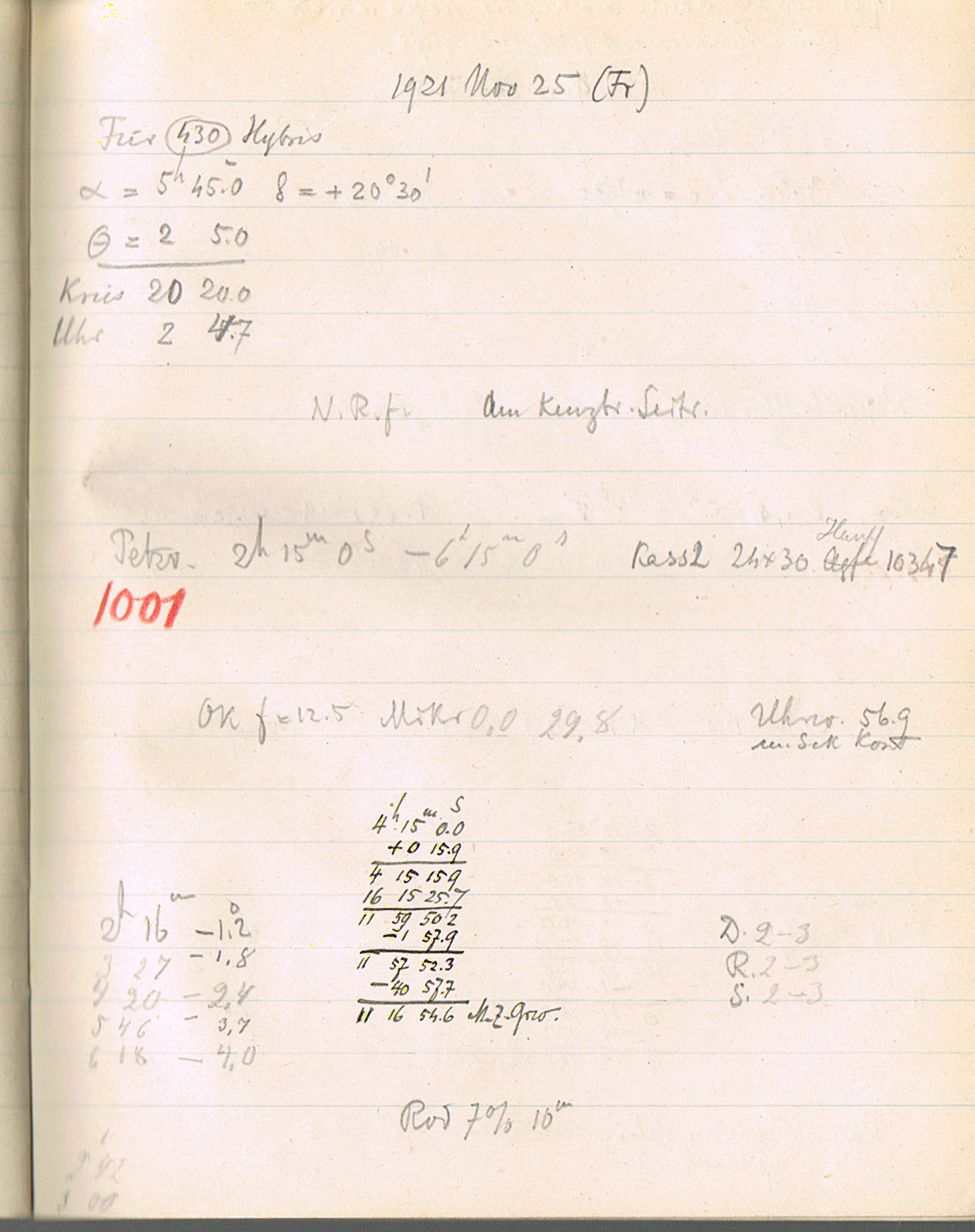 1921 Nov 25 (Fr)
Für (430) Hybris
α = 5h 45.0 δ = +20°30'
Θ = 2 5.0
Kreis 20 20.0
Uhr 2 4.7
N.R.f. Am Kenztr. Seitr.
Petzv. 2h 15m 0s – 6h 15m 0s Kass2 24×30 Hauff 10347
1001
OK f=12.5 Mikr 0,0 29,8 Uhrv. 56.9
im Sek Kont
h m s
4 15 0.0
+0 15.9
4 15 15.9
16 15 25.7
11 59 50.2
–1 57.9
11 57 52.3
–40 57.7
11 16 54.6 M.Z.Grw.
2h 16m –1°.2
3 27 –1,8
4 20 –2,4
5 46 –3,7
6 18 –4,0
D. 2–3
R. 2–3
S. 2–3
Rod 7% 10m